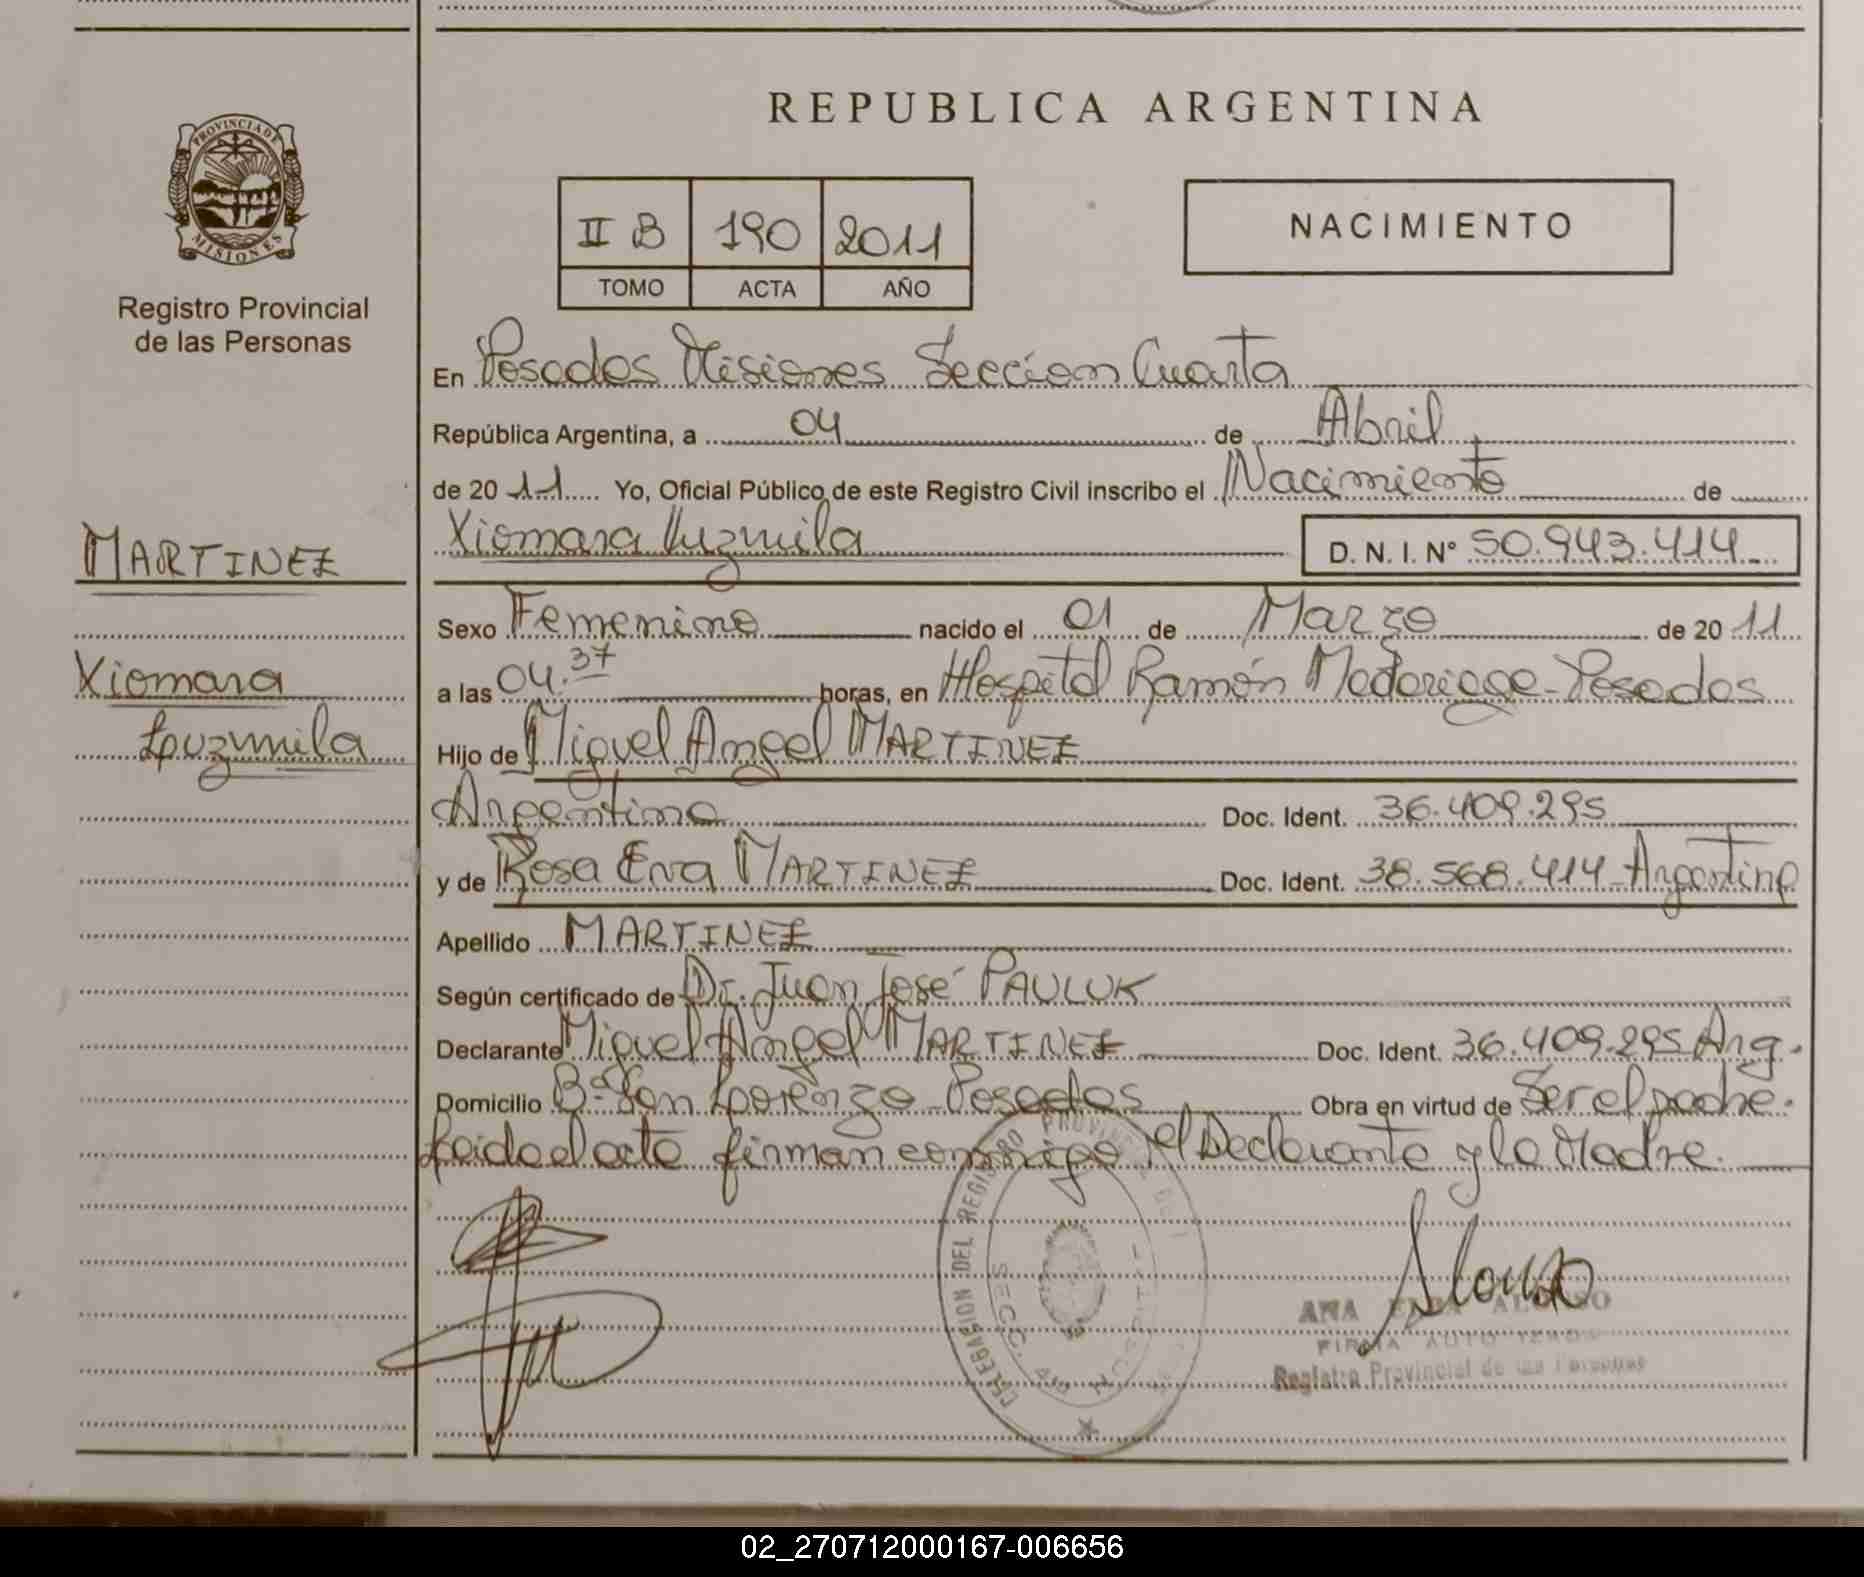 REPUBLICA ARGENTINA
PROVINCIA DE
MISIONES
Registro Provincial
de las Personas
II B 190 2011
TOMO ACTA AÑO
NACIMIENTO
En Posadas Misiones Sección Cuarta
República Argentina, a 04 de Abril
de 2011 Yo, Oficial Público de este Registro Civil inscribo el Nacimiento de
Xiomara Luzmila D. N. I. Nº 50.943.414
MARTINEZ
Xiomara
Luzmila
Sexo Femenino nacido el 01 de Marzo de 2011
a las 04.37 horas, en Hospital Ramón Madariaga - Posadas
Hijo de Miguel Angel MARTINEZ
Argentino Doc. Ident. 36.409.295
y de Rosa Eva MARTINEZ Doc. Ident. 38.568.414 Argentina
Apellido MARTINEZ
Según certificado de Dr. Juan José PAULUK
Declarante Miguel Angel MARTINEZ Doc. Ident. 36.409.295 Arg.
Domicilio Bº San Lorenzo Posadas Obra en virtud de Ser el padre.
Leida el acta firman conmigo el Declarante y la Madre.
DELEGACION DEL REGISTRO PROVINCIAL DE
SECC. 4ta HOSPITAL
Alonso
ANA ALONSO
FIRMA AUTO
Registro Provincial de las Personas
02_270712000167-006656